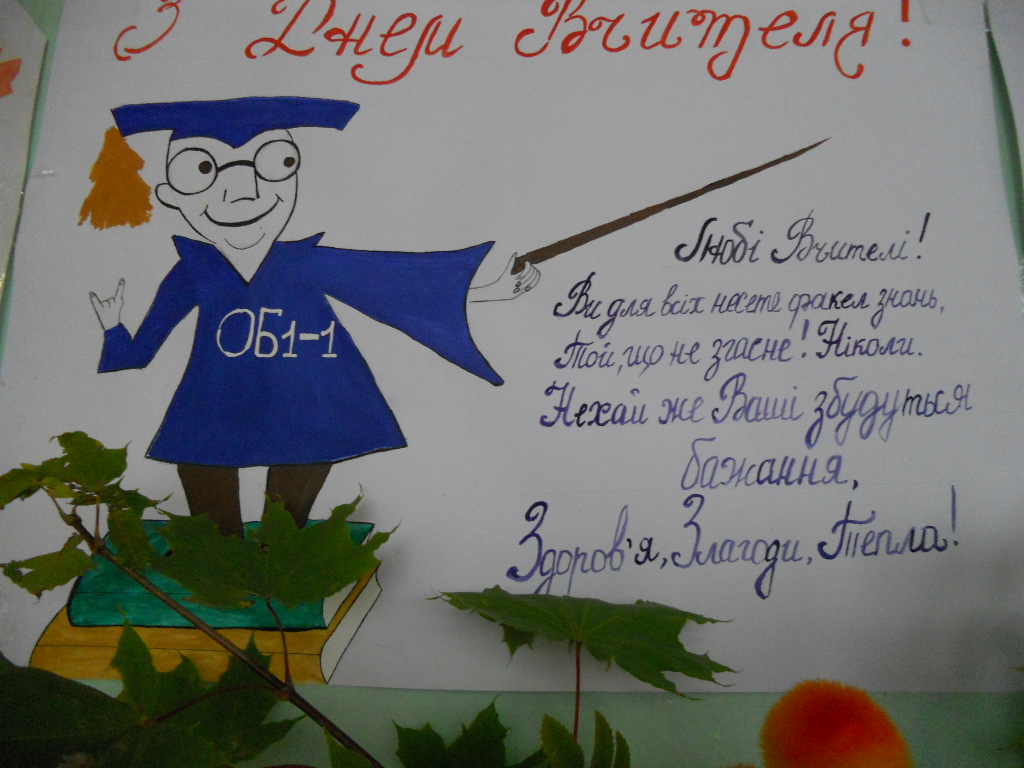 З Днем Вчителя!
ОБ1-1
Любі Вчителі!
Ви для всіх несете факел знань,
Той, що не згасне! Ніколи.
Нехай же Ваші збудуться
бажання,
Здоров'я, Злагоди, Тепла!